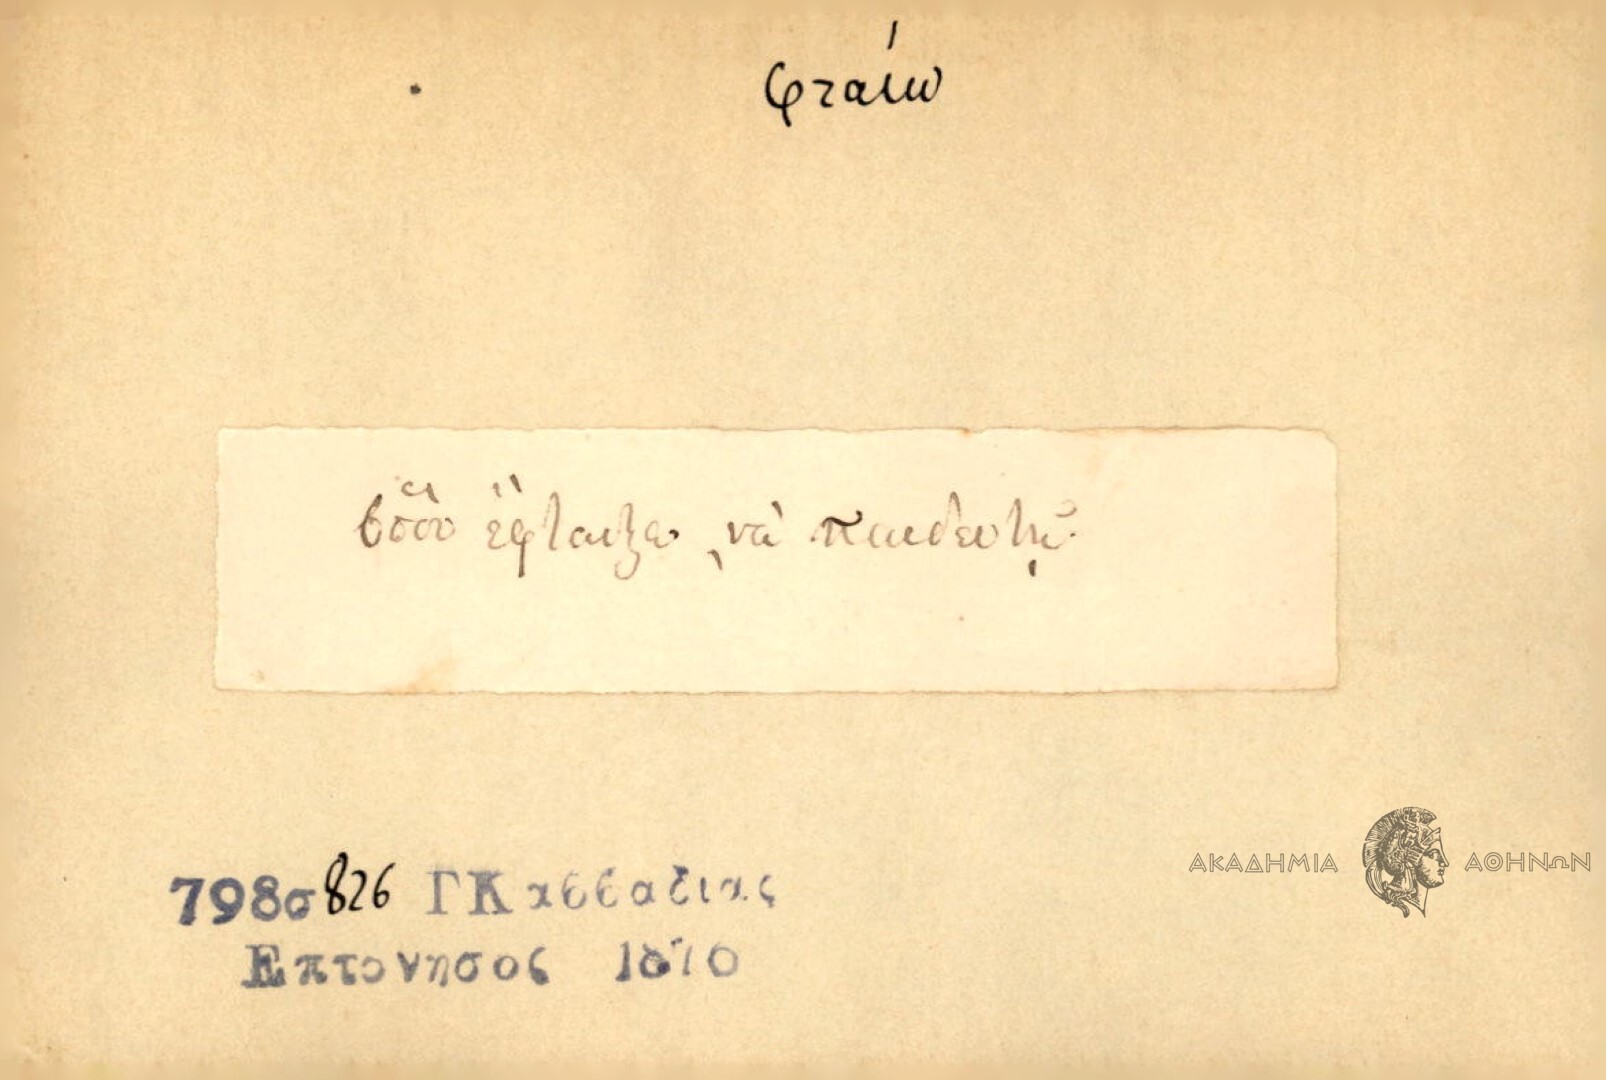 φταίω
ὅσου ἔφταιξα, νὰ παιδευτῇ
798σ 826 ΓΚαββαδιας
Επτονησος 1870
ΑΚΑΔΗΜΙΑ ΑΘΗΝΩΝ